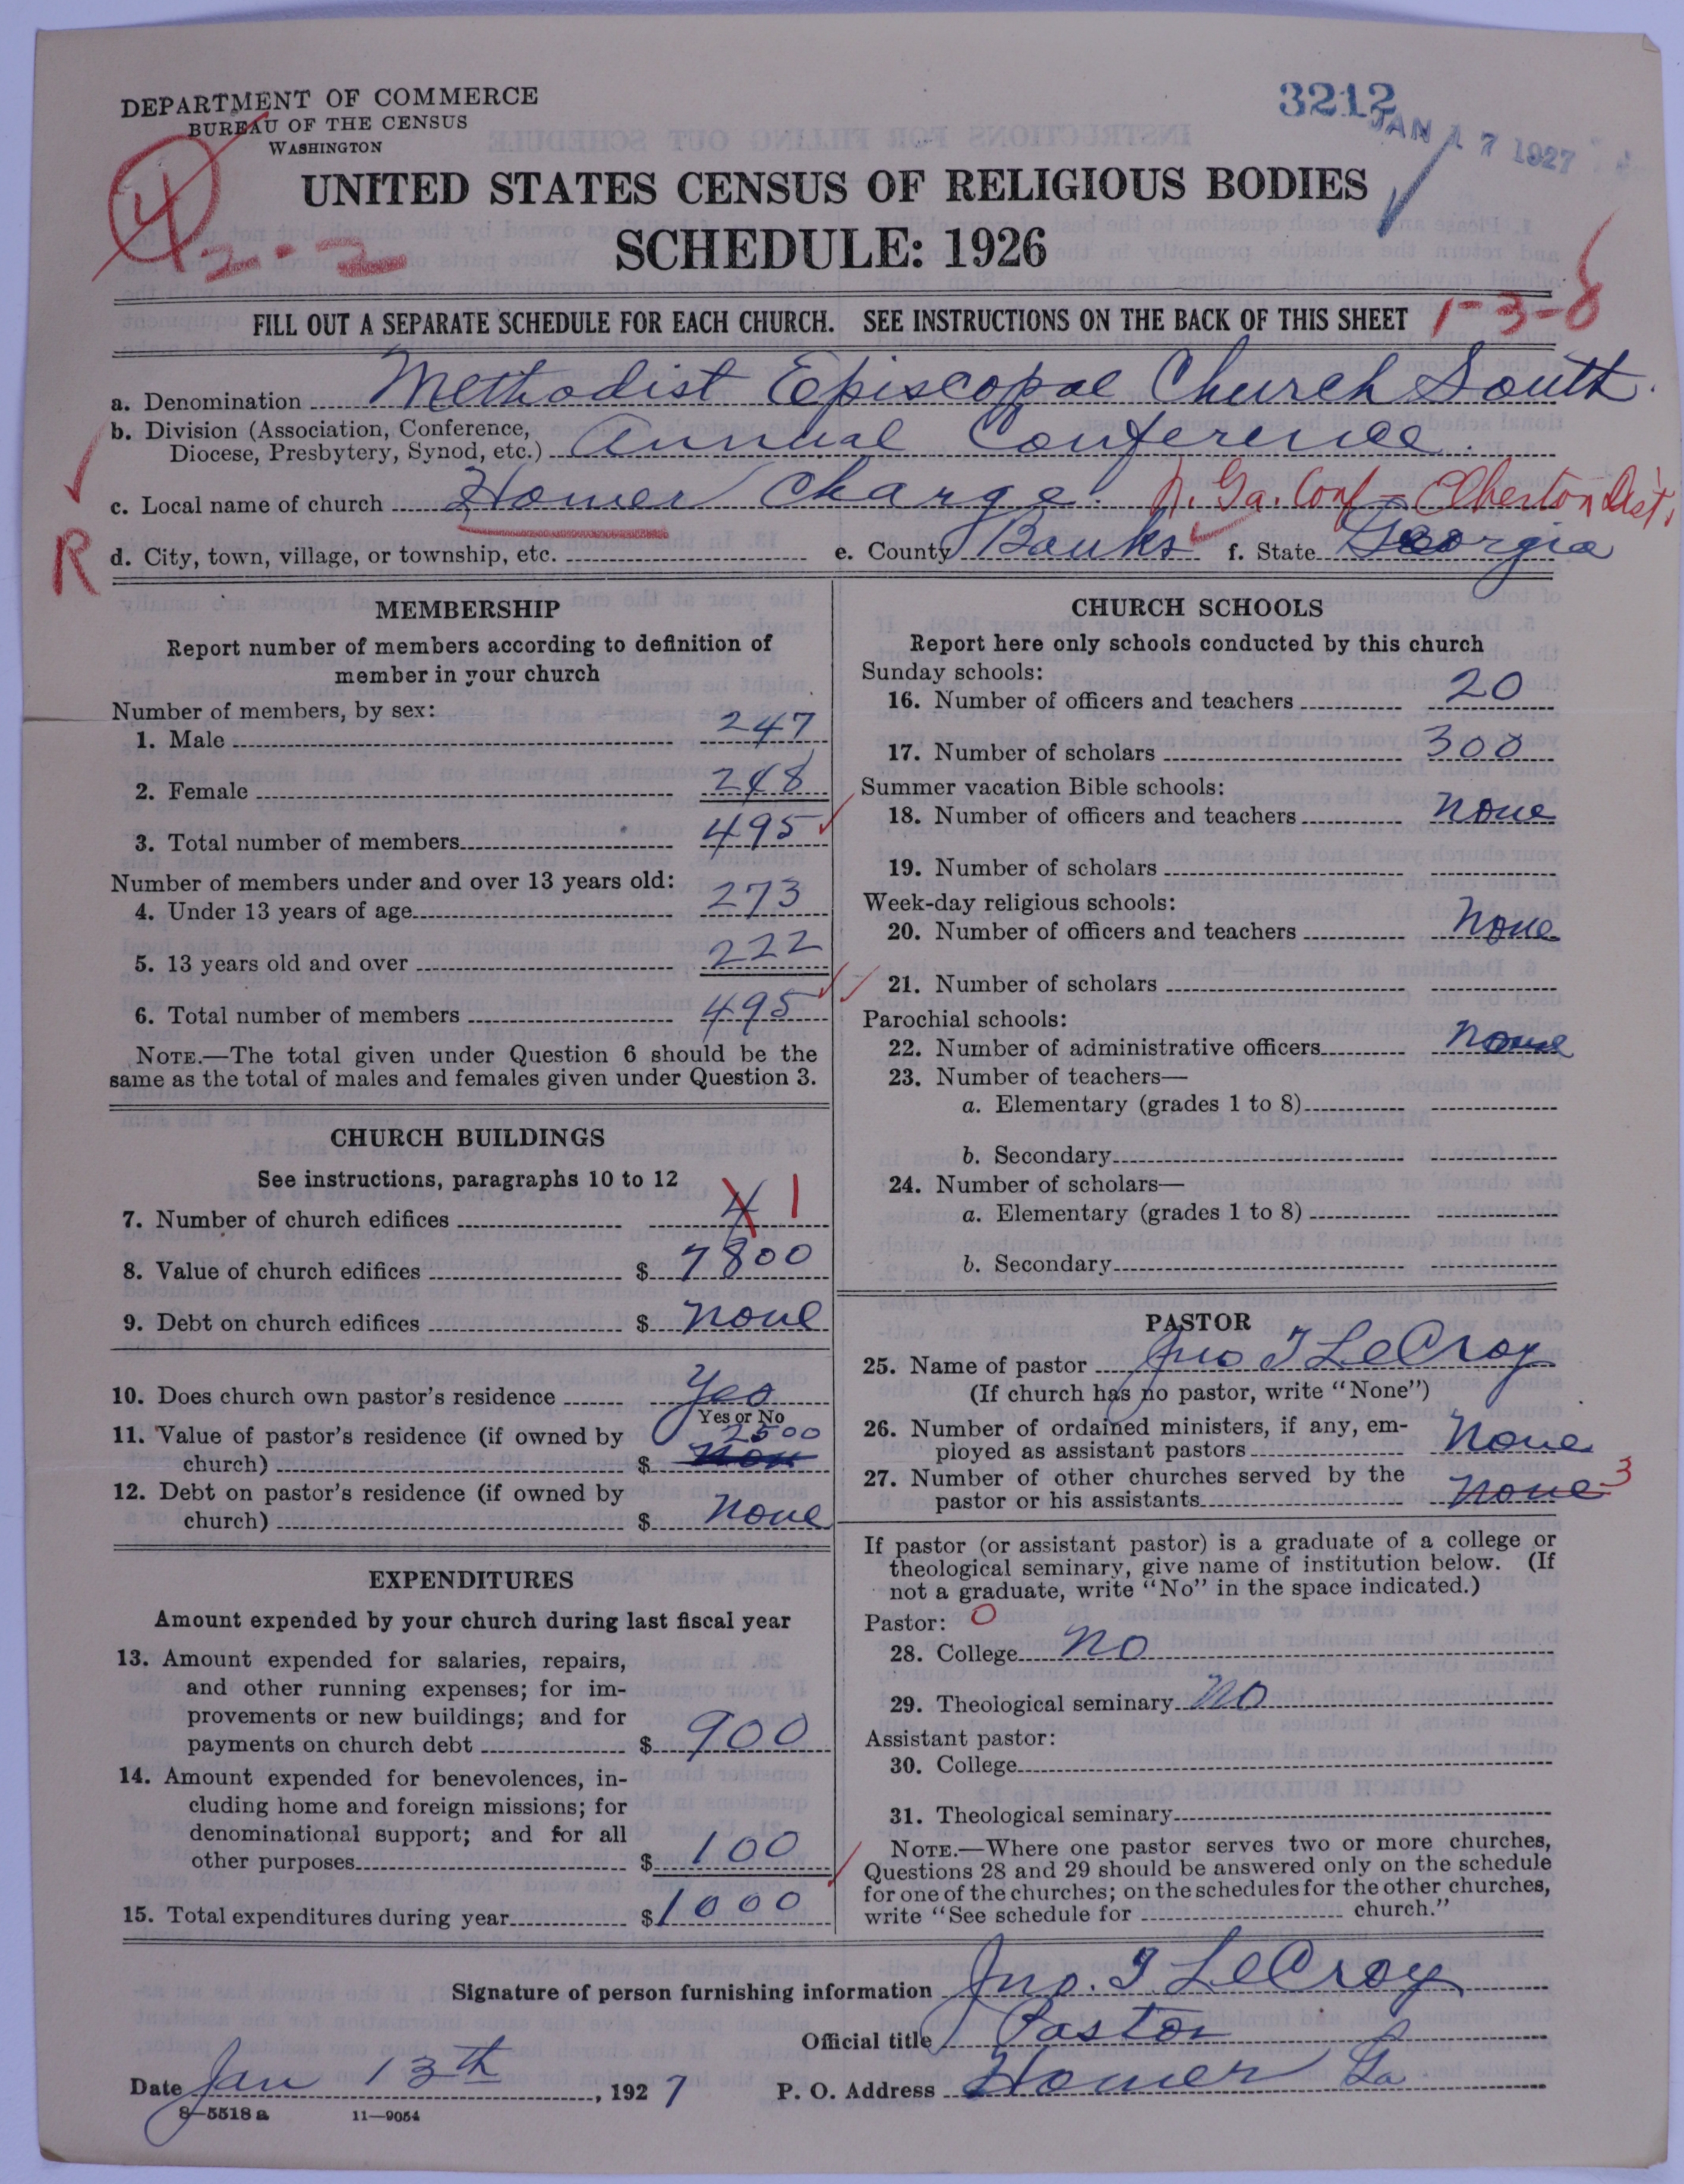 DEPARTMENT OF COMMERCE
BUREAU OF THE CENSUS
WASHINGTON
3212
JAN 17 1927
4
2-2
UNITED STATES CENSUS OF RELIGIOUS BODIES
SCHEDULE: 1926
FILL OUT A SEPARATE SCHEDULE FOR EACH CHURCH. SEE INSTRUCTIONS ON THE BACK OF THIS SHEET
1-3-8
a. Denomination Methodist Episcopal Church South.
b. Division (Association, Conference,
Diocese, Presbytery, Synod, etc.) Annual Conference.
c. Local name of church Homer Charge. N. Ga. Conf - Elberton Dist.
R
d. City, town, village, or township, etc. e. County Banks f. State Georgia
MEMBERSHIP
Report number of members according to definition of
member in your church
Number of members, by sex:
1. Male 247
2. Female 248
3. Total number of members 495
Number of members under and over 13 years old:
4. Under 13 years of age 273
5. 13 years old and over 222
6. Total number of members 495
NOTE.—The total given under Question 6 should be the
same as the total of males and females given under Question 3.
CHURCH BUILDINGS
See instructions, paragraphs 10 to 12
7. Number of church edifices 4 1
8. Value of church edifices $ 7800
9. Debt on church edifices $ none
10. Does church own pastor's residence Yes
Yes or No
11. Value of pastor's residence (if owned by 2500
church) $ non
12. Debt on pastor's residence (if owned by
church) $ none
EXPENDITURES
Amount expended by your church during last fiscal year
13. Amount expended for salaries, repairs,
and other running expenses; for im-
provements or new buildings; and for
payments on church debt $ 900
14. Amount expended for benevolences, in-
cluding home and foreign missions; for
denominational support; and for all
other purposes $ 100
15. Total expenditures during year $ 1000
CHURCH SCHOOLS
Report here only schools conducted by this church
Sunday schools:
16. Number of officers and teachers 20
17. Number of scholars 300
Summer vacation Bible schools:
18. Number of officers and teachers none
19. Number of scholars
Week-day religious schools:
20. Number of officers and teachers none
21. Number of scholars
Parochial schools:
22. Number of administrative officers none
23. Number of teachers—
a. Elementary (grades 1 to 8)
b. Secondary
24. Number of scholars—
a. Elementary (grades 1 to 8)
b. Secondary
PASTOR
25. Name of pastor Jno T LeCroy
(If church has no pastor, write "None")
26. Number of ordained ministers, if any, em-
ployed as assistant pastors none
27. Number of other churches served by the
pastor or his assistants none 3
If pastor (or assistant pastor) is a graduate of a college or
theological seminary, give name of institution below. (If
not a graduate, write "No" in the space indicated.)
Pastor: 0
28. College no
29. Theological seminary no
Assistant pastor:
30. College
31. Theological seminary
NOTE.—Where one pastor serves two or more churches,
Questions 28 and 29 should be answered only on the schedule
for one of the churches; on the schedules for the other churches,
write "See schedule for church."
Signature of person furnishing information Jno. T LeCroy
Official title Pastor
Date Jan 13th, 1927 P. O. Address Homer Ga
8—5518 a 11—9054